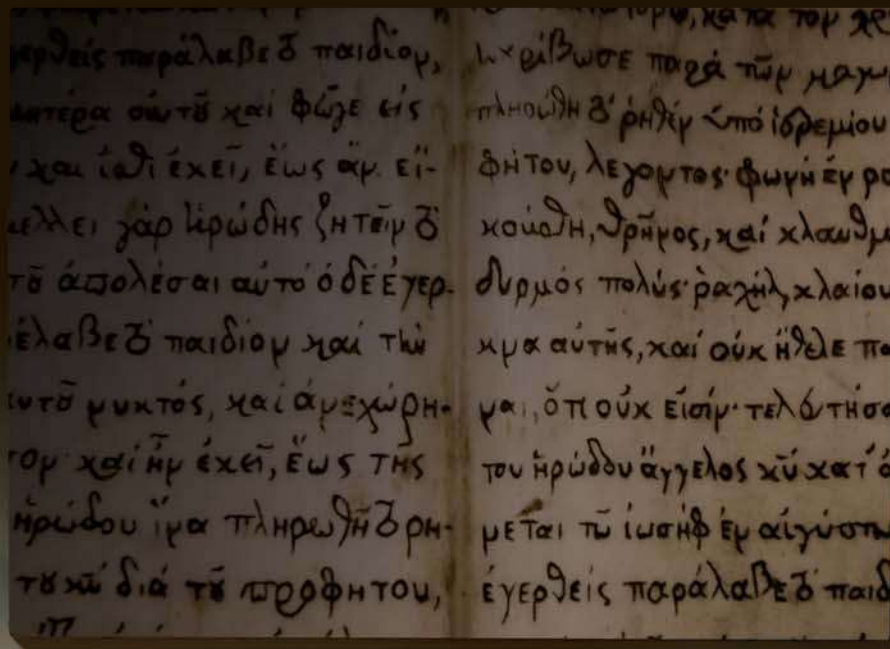 γερθείς παράλαβε τὸ παιδίον,
μητέρα αὐτοῦ καί φεῦγε εἰς
καί ἴσθι ἐκεῖ, ἕως ἄν εἴ-
μέλλει γάρ ἡρώδης ζητεῖν τὸ
τοῦ ἀπολέσαι αὐτό ὁ δέ ἐγερ-
έλαβε τὸ παιδίον καί τὴν
αὐτοῦ νυκτός, καί ἀνεχώρη-
τον καί ἦν ἐκεῖ, ἕως τῆς
ἡρώδου ἵνα πληρωθῇ τὸ ρη-
τοῦ κυ διά τοῦ προφήτου,
κατά τον χρ
ἠκρίβωσε παρά τῶν μάγω
ἐπληρώθη τὸ ρηθέν ὑπό ἱερεμίου
φήτου, λέγοντος· φωνή ἐν ρα
κούσθη, θρῆνος, καί κλαυθμ
δυρμός πολύς· ραχήλ κλαίου
κνα αὐτῆς, καί οὐκ ἤθελε πα
ναι, ὅτι οὐκ εἰσίν· τελευτήσα
του ἡρώδου ἄγγελος κυ κατ᾽ ὄ
νεται τῶ ἰωσήφ ἐν αἰγύπτω
ἐγερθείς παράλαβε τὸ παιδ